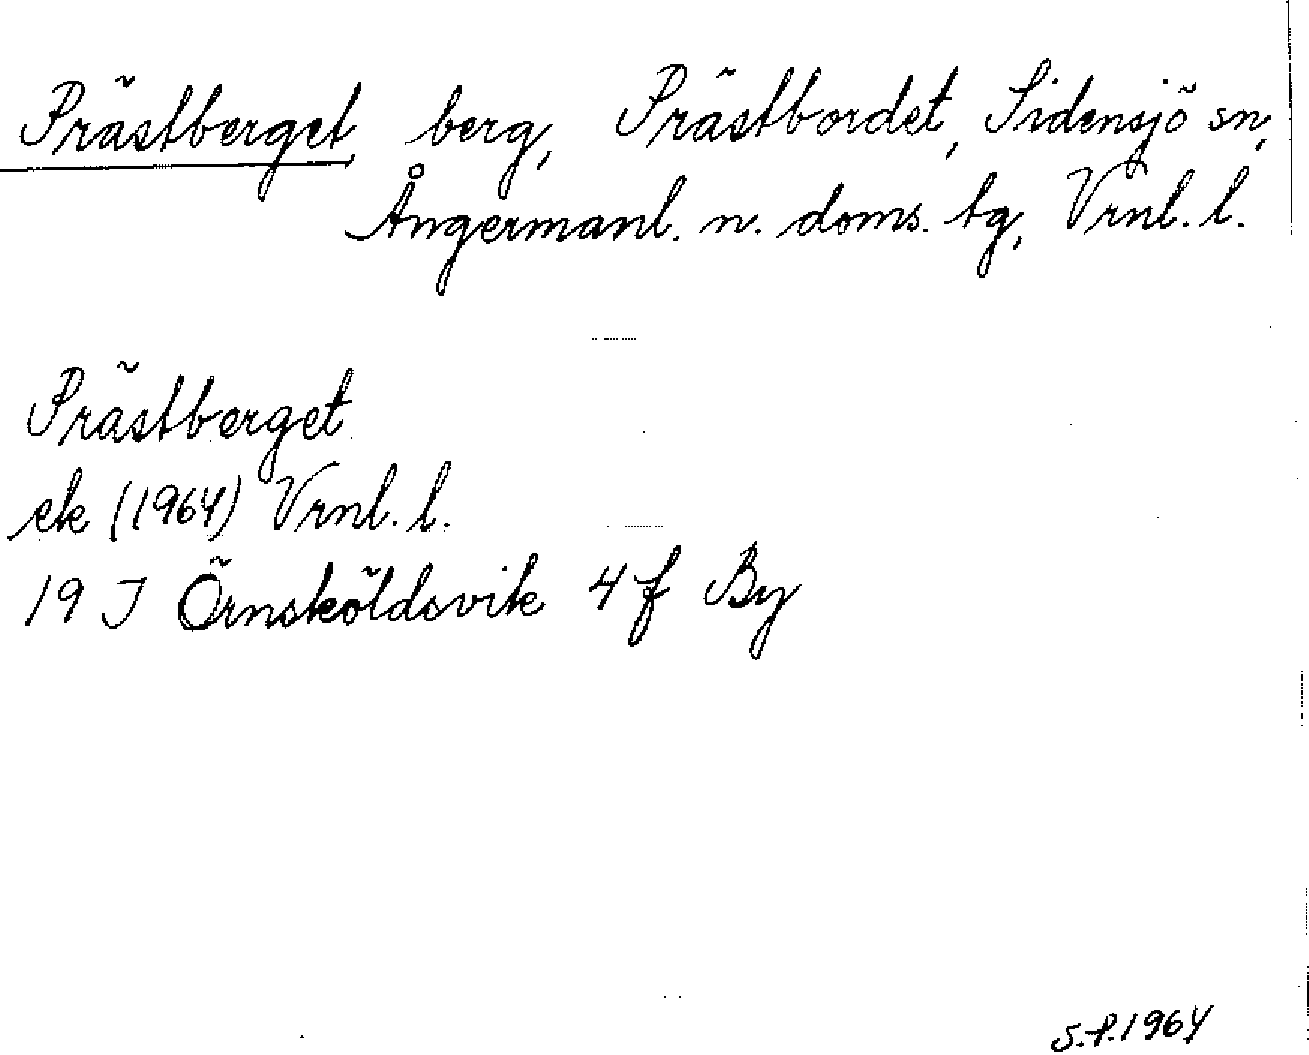 Prästberget berg, Prästbordet, Sidensjö sn,
Ångermanl. n. doms. tg, Vrnl. l.
Prästberget
ek (1964) Vrnl. l.
19 J Örnsköldsvik 4 f By
S.P. 1964